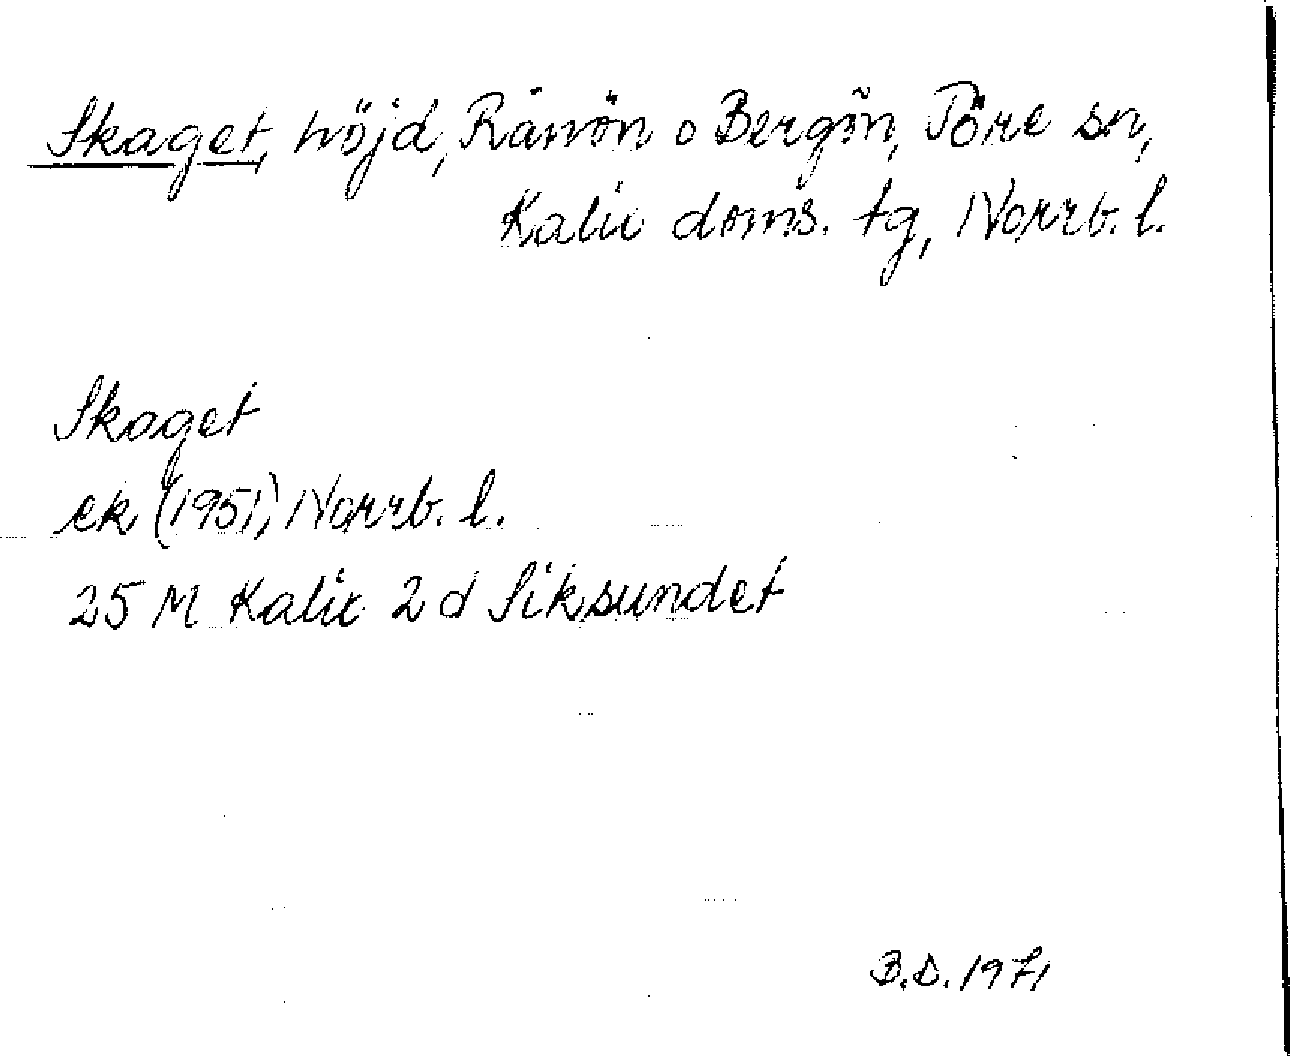 Skaget, höjd, Rånön o Bergön, Töre sn,
Kalix doms. tg, Norrb. l.
Skaget
ek (1951) Norrb. l.
25 M Kalix 2 d Siksundet
B.D. 1971